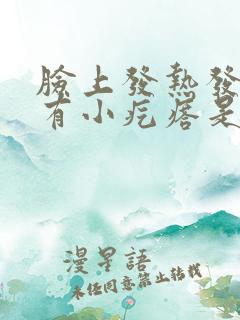 臉上發熱發
有小疙瘩是
漫星語
未经同意禁止转载